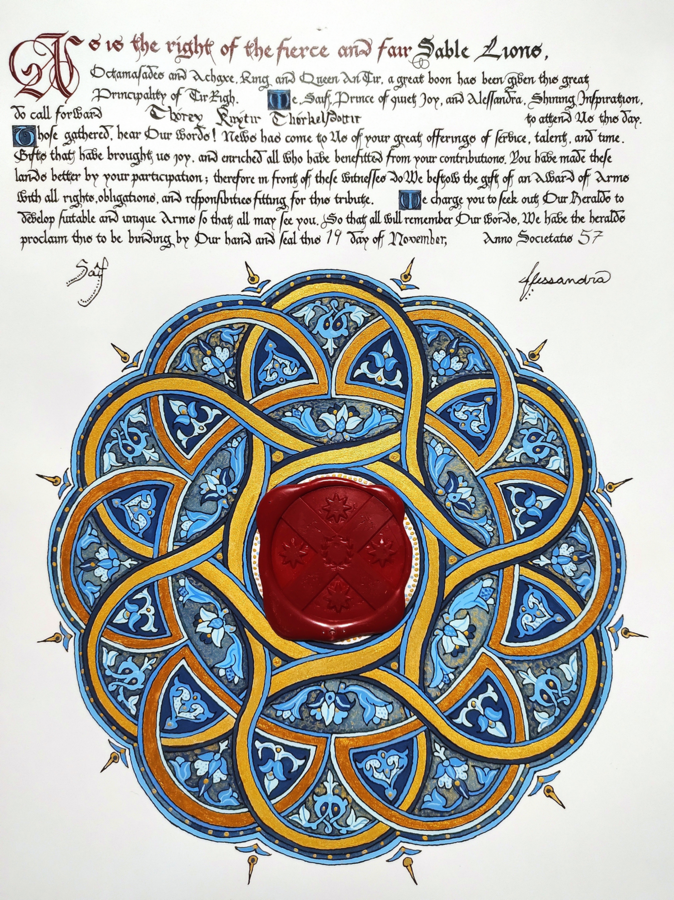 As is the right of the fierce and fair Sable Lions,
Octamasades and Achaxe, King and Queen An Tir, a great boon has been given this great
Principality of Tir Righ. We Saif, Prince of quiet Joy, and Alessandra, Shining Inspiration,
do call forward Thorey Knytir Thorkelsdottir to attend Us this day.
Those gathered, hear Our words! News has come to Us of your great offerings of service, talent, and time.
Gifts that have brought us joy, and enriched all who have benefitted from your contributions. You have made these
lands better by your participation; therefore in front of these witnesses do We bestow the gift of an Award of Arms
with all rights, obligations, and responsibilities fitting for this tribute. We charge you to seek out Our Heralds to
develop suitable and unique Arms so that all may see you. So that all will remember Our words, We have the heralds
proclaim this to be binding by Our hand and seal this 19 day of November, Anno Societatis 57
Saif Alessandra